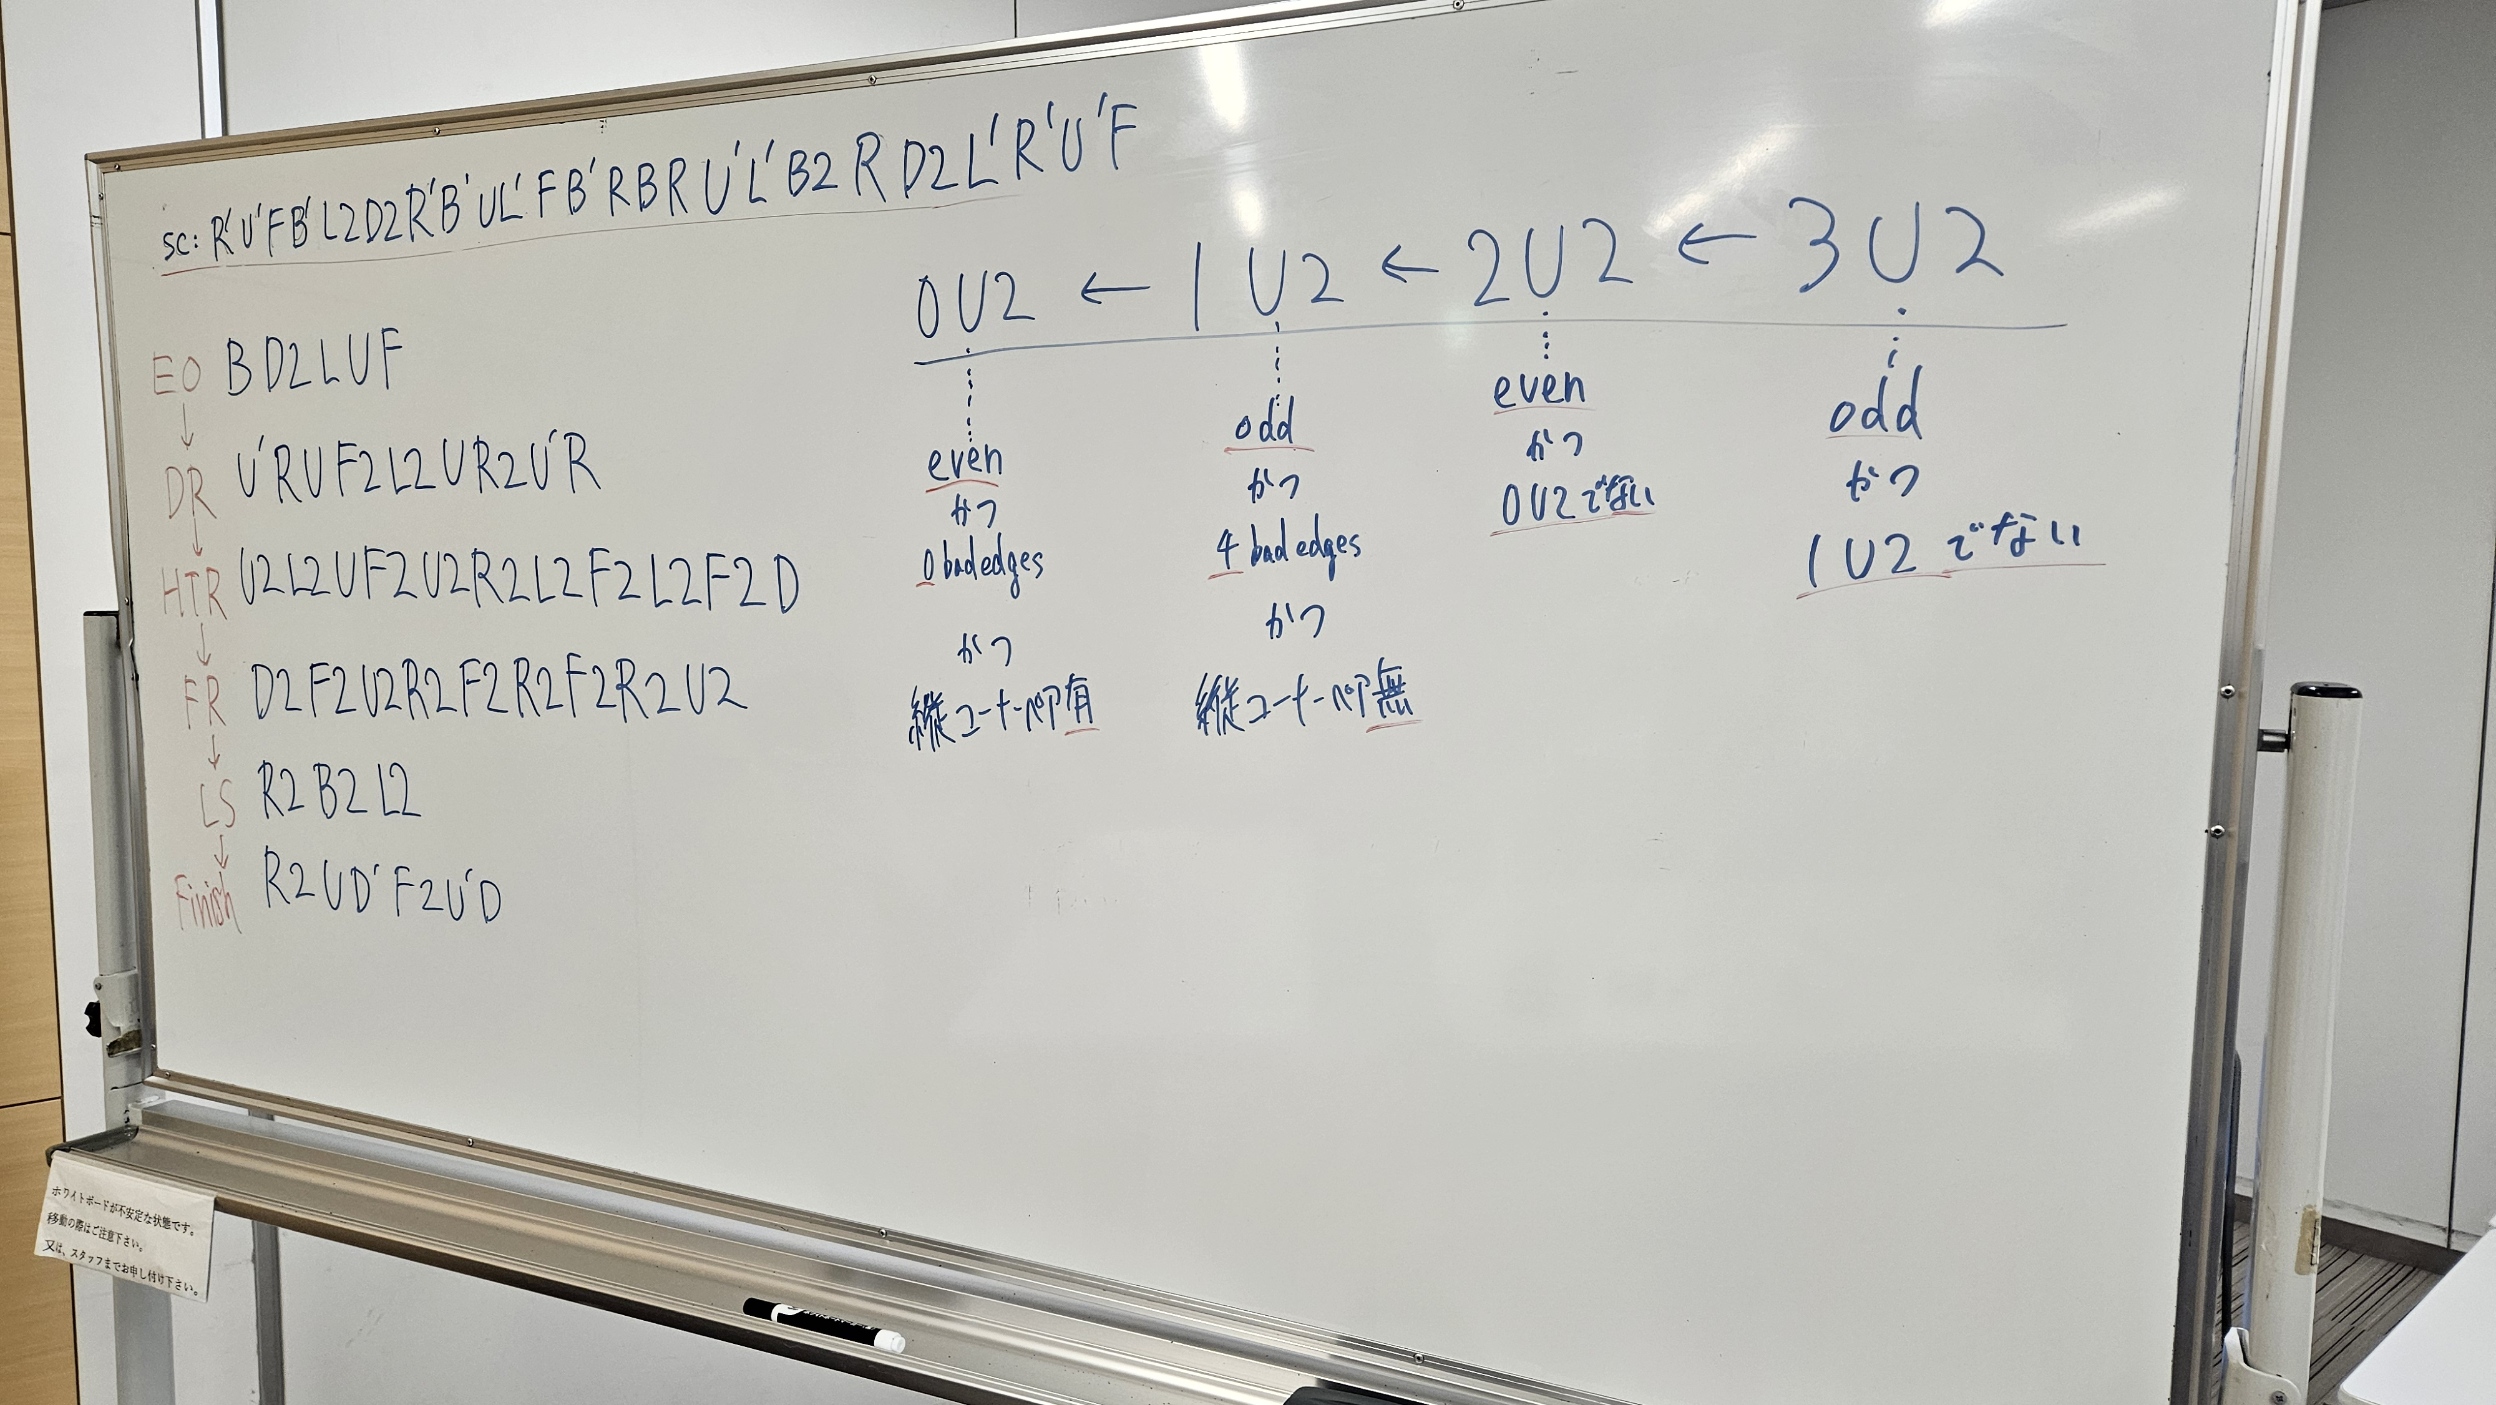 sc: R'U'FB'L2D2R'B'UL'FB'RBRU'L'B2RD2L'R'U'F
EO BD2LUF
↓
DR U'RUF2L2UR2U'R
↓
HTR U2L2UF2U2R2L2F2L2F2D
↓
FR D2F2U2R2F2R2F2R2U2
↓
LS R2B2L2
↓
Finish R2UD'F2U'D
0U2 ← 1U2 ← 2U2 ← 3U2
even
かつ
0 bad edges
かつ
縦コーナーペア有
odd
かつ
4 bad edges
かつ
縦コーナーペア無
even
かつ
0U2でない
odd
かつ
1U2でない
ホワイトボードが不安定な状態です。
移動の際はご注意下さい。
又は、スタッフまでお申し付け下さい。